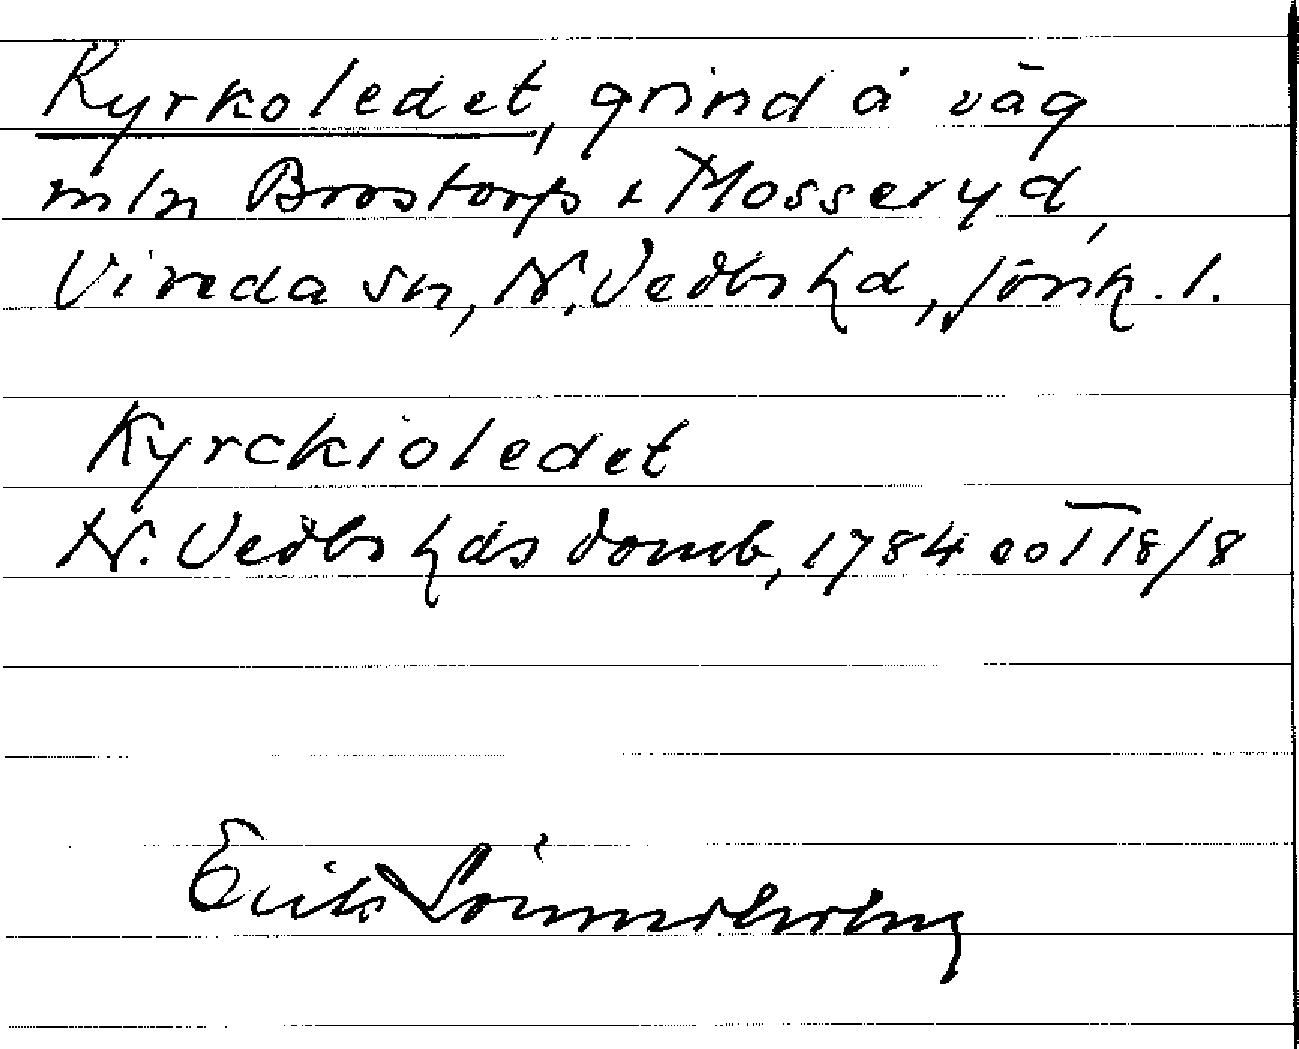 Kyrkoledet, grind å väg
mln Brostorp & Mosseryd,
Vireda sn, N. Vedbo hd, Jönk. l.
Kyrckioledet
N. Vedbo hds domb, 1784 eo I 18/8
Erik Lönnerholm